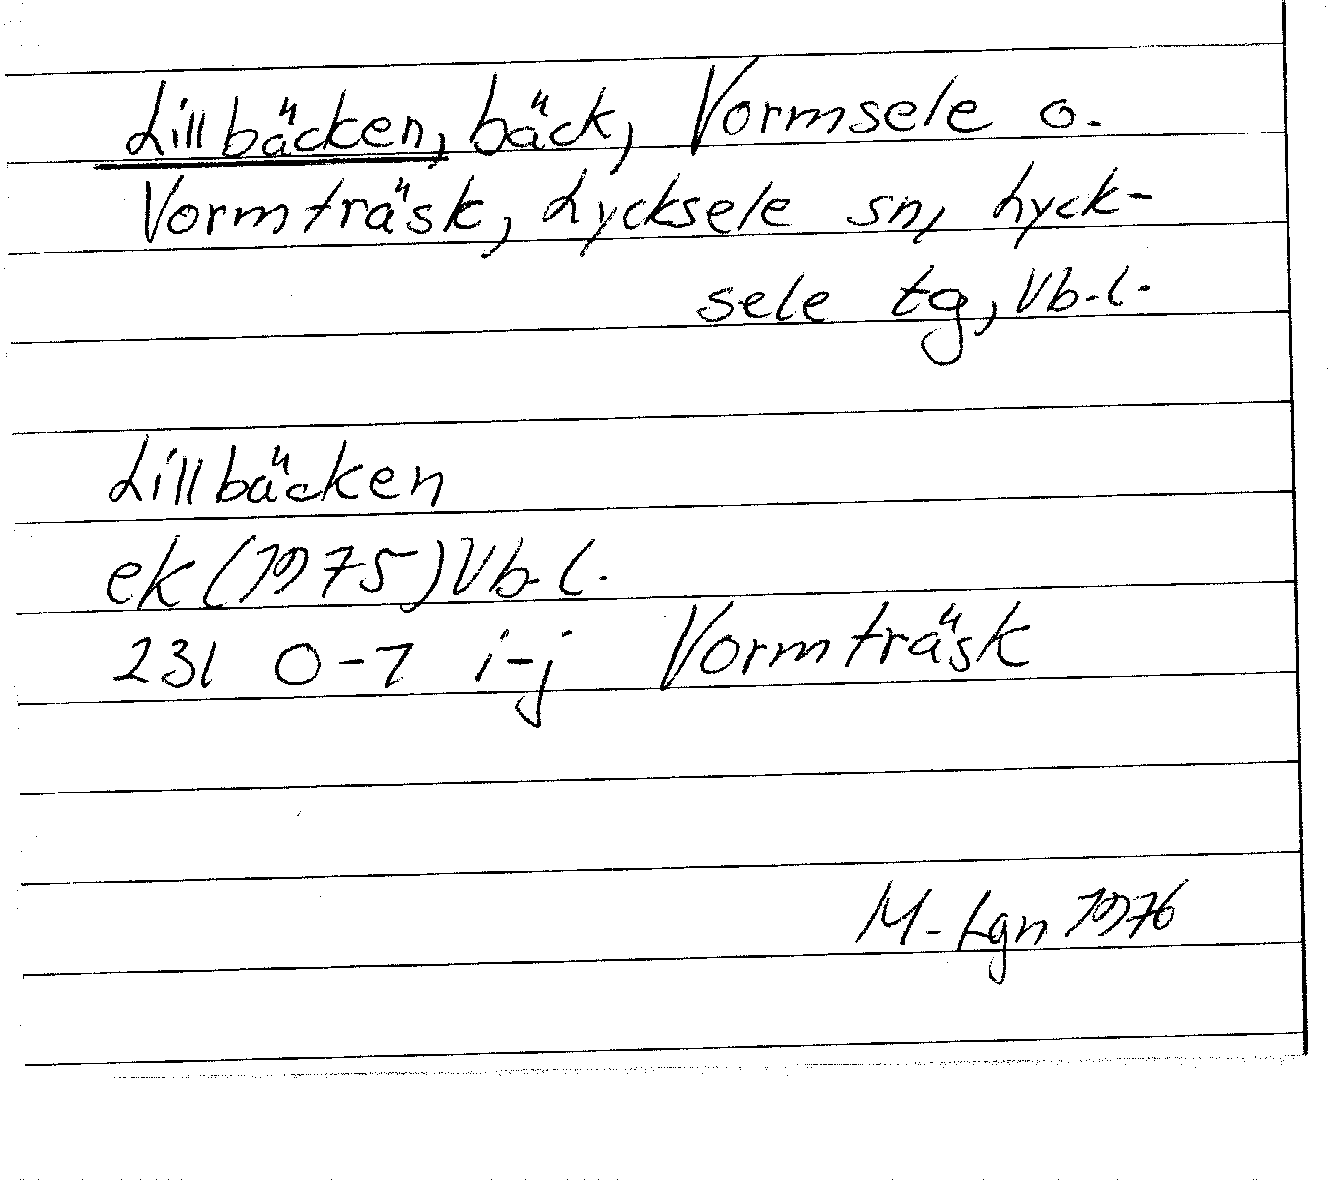 Lillbäcken, bäck, Vormsele o.
Vormträsk, Lycksele sn, Lyck-
sele tg, Vb.l.
Lillbäcken
ek (1975) Vb.l.
23I 0-7 i-j Vormträsk
M-Lgn 1976